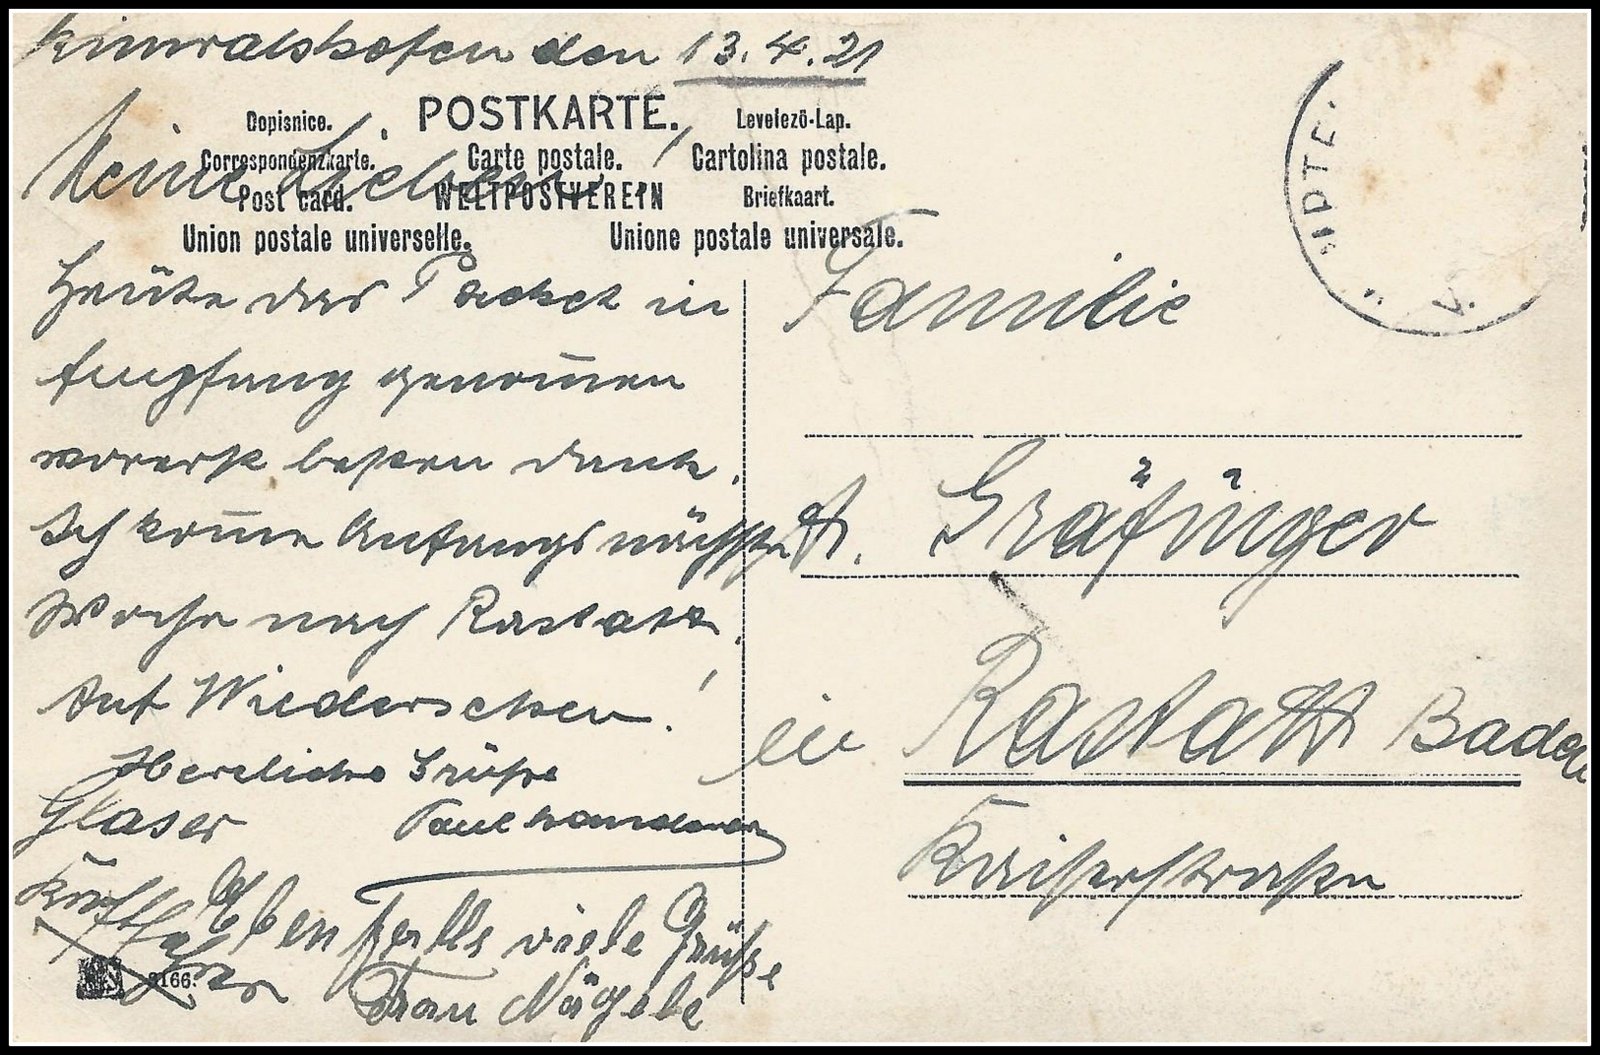 Kimratshofen den 13.4.21
POSTKARTE.
Dopisnice.
Levelezö-Lap.
Correspondenzkarte.
Carte postale.
Cartolina postale.
Post card.
WELTPOSTVEREIN
Briefkaart.
Union postale universelle.
Unione postale universale.
Meine Lieben!
Heute das Packet in
Empfang genom̄en
vorerst besten Dank.
Ich kom̄e Anfangs nächste
Woche nach Rastatt.
Auf Wiedersehen!
Herzliche Grüße
Glaser
Paul
Ebenfalls viele Grüße
Frau Nägele
3166.
Familie
Gräfinger
in Rastatt Baden
Kaiserstraße